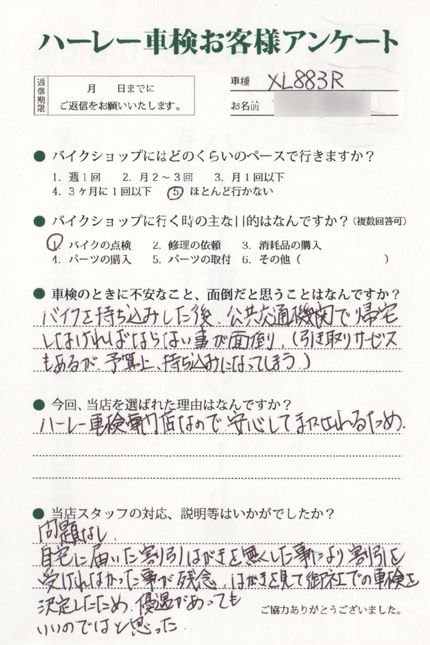 ハーレー車検お客様アンケート
返信期限
月 日までに
ご返信をお願いいたします。
車種 XL883R
お名前
● バイクショップにはどのくらいのペースで行きますか？
1. 週1回 2. 月2～3回 3. 月1回以下
4. 3ヶ月に1回以下 ⑤ ほとんど行かない
● バイクショップに行く時の主な目的はなんですか？(複数回答可)
① バイクの点検 2. 修理の依頼 3. 消耗品の購入
4. パーツの購入 5. パーツの取付 6. その他（ ）
● 車検のときに不安なこと、面倒だと思うことはなんですか？
バイクを持ち込みした後、公共交通機関で帰宅
しなければならない事が面倒。(引き取りサービス
もあるが、予算上、持ち込みになってしまう)
● 今回、当店を選ばれた理由はなんですか？
ハーレー車検専門店なので安心してまかせられるため.
● 当店スタッフの対応、説明等はいかがでしたか？
問題なし.
自宅に届いた割引はがきを無くした事により割引を
受けれなかった事が残念. はがきを見て御社での車検を
決定したため、優遇があっても
いいのではと思った.
ご協力ありがとうございました。